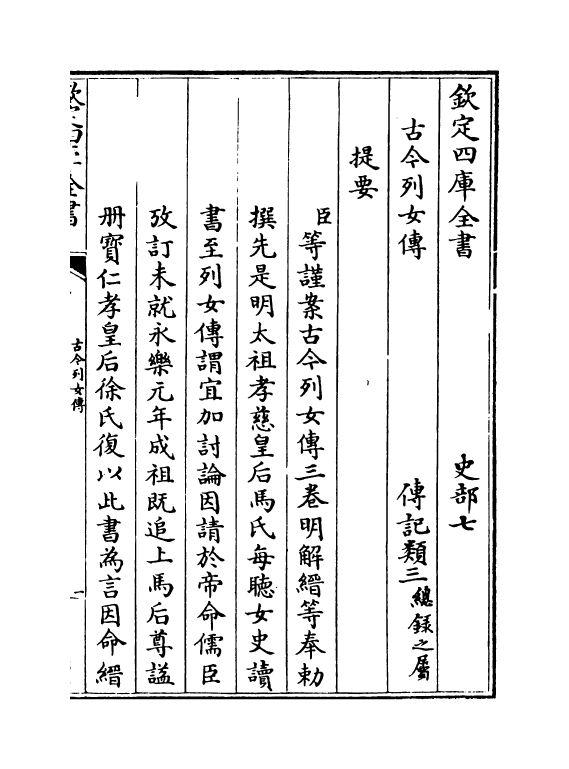 欽定四庫全書　史部七
古今列女傳　傳記類三總録之屬
提要
臣等謹案古今列女傳三卷明解縉等奉勅
撰先是明太祖孝慈皇后馬氏每聽女史讀
書至列女傳謂宜加討論因請於帝命儒臣
攷訂未就永樂元年成祖既追上馬后尊謚
册寳仁孝皇后徐氏復以此書為言因命縉
古今列女傳
一